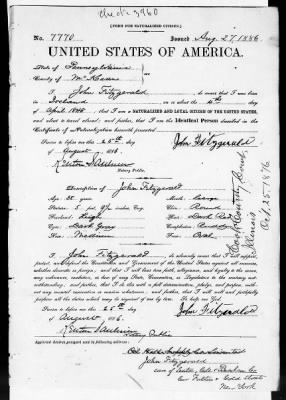 [FORM FOR NATURALIZED CITIZEN.]
No. 7770 Issued Aug. 27, 1886
UNITED STATES OF AMERICA.
State of Pennsylvania
County of McKean
I John Fitzgerald do swear that I was born
in Ireland on or about the
of April 1848, that I am a NATURALIZED AND LOYAL CITIZEN OF THE UNITED STATES,
and about to travel abroad; and further, that I am the Identical Person described in the
Certificate of Naturalization herewith presented.
Sworn to before me this 25th day
of August 1886.
John Fitzgerald
Notary Public.
Cook County Court
Illinois
Oct. 25, 1876
Description of John Fitzgerald
Age: 38 years
Stature: 5 feet inches, Eng.
Forehead: High
Eyes: Dark Gray
Nose: Medium
Mouth: Large
Chin: Round
Hair: Dark
Complexion:
Face: Oval
I, John Fitzgerald do solemnly swear that I will support,
protect, and defend the Constitution and Government of the United States against all enemies,
whether domestic or foreign, and that I will bear true faith, allegiance, and loyalty to the same,
any ordinance, resolution, or law of any State, Convention, or Legislature to the contrary not-
withstanding; and further, that I do this with a full determination, pledge, and purpose, with-
out any mental reservation or evasion whatsoever; and further, that I will well and faithfully
perform all the duties which may be required of me by law. So help me God.
Sworn to before me this 25th day
of August 1886.
John Fitzgerald
Notary Public
Applicant desires passport sent to
John Fitzgerald
care of
New York